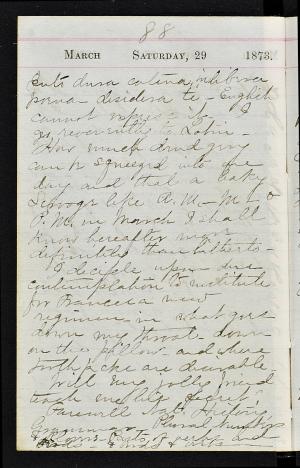 88
MARCH SATURDAY, 29 1873.
dura catena, misera
poena - desidero te - English
cannot express it, I
go, reverently to Latin -
How much drudgery
can be squeezed into one
day and that a baky
like A.M. - M - &
P.M. in March I shall
know hereafter more
definitely than hitherto -
I decide upon due
contemplation to institute
for a new
regimen in what goes
down my throat - down
on the pillow - and where
tooth ache are desirable
Will my jolly friend
teach me his secret?
Farewell Nat. History
Grammar - Plural numbers
& Roots of verbs and